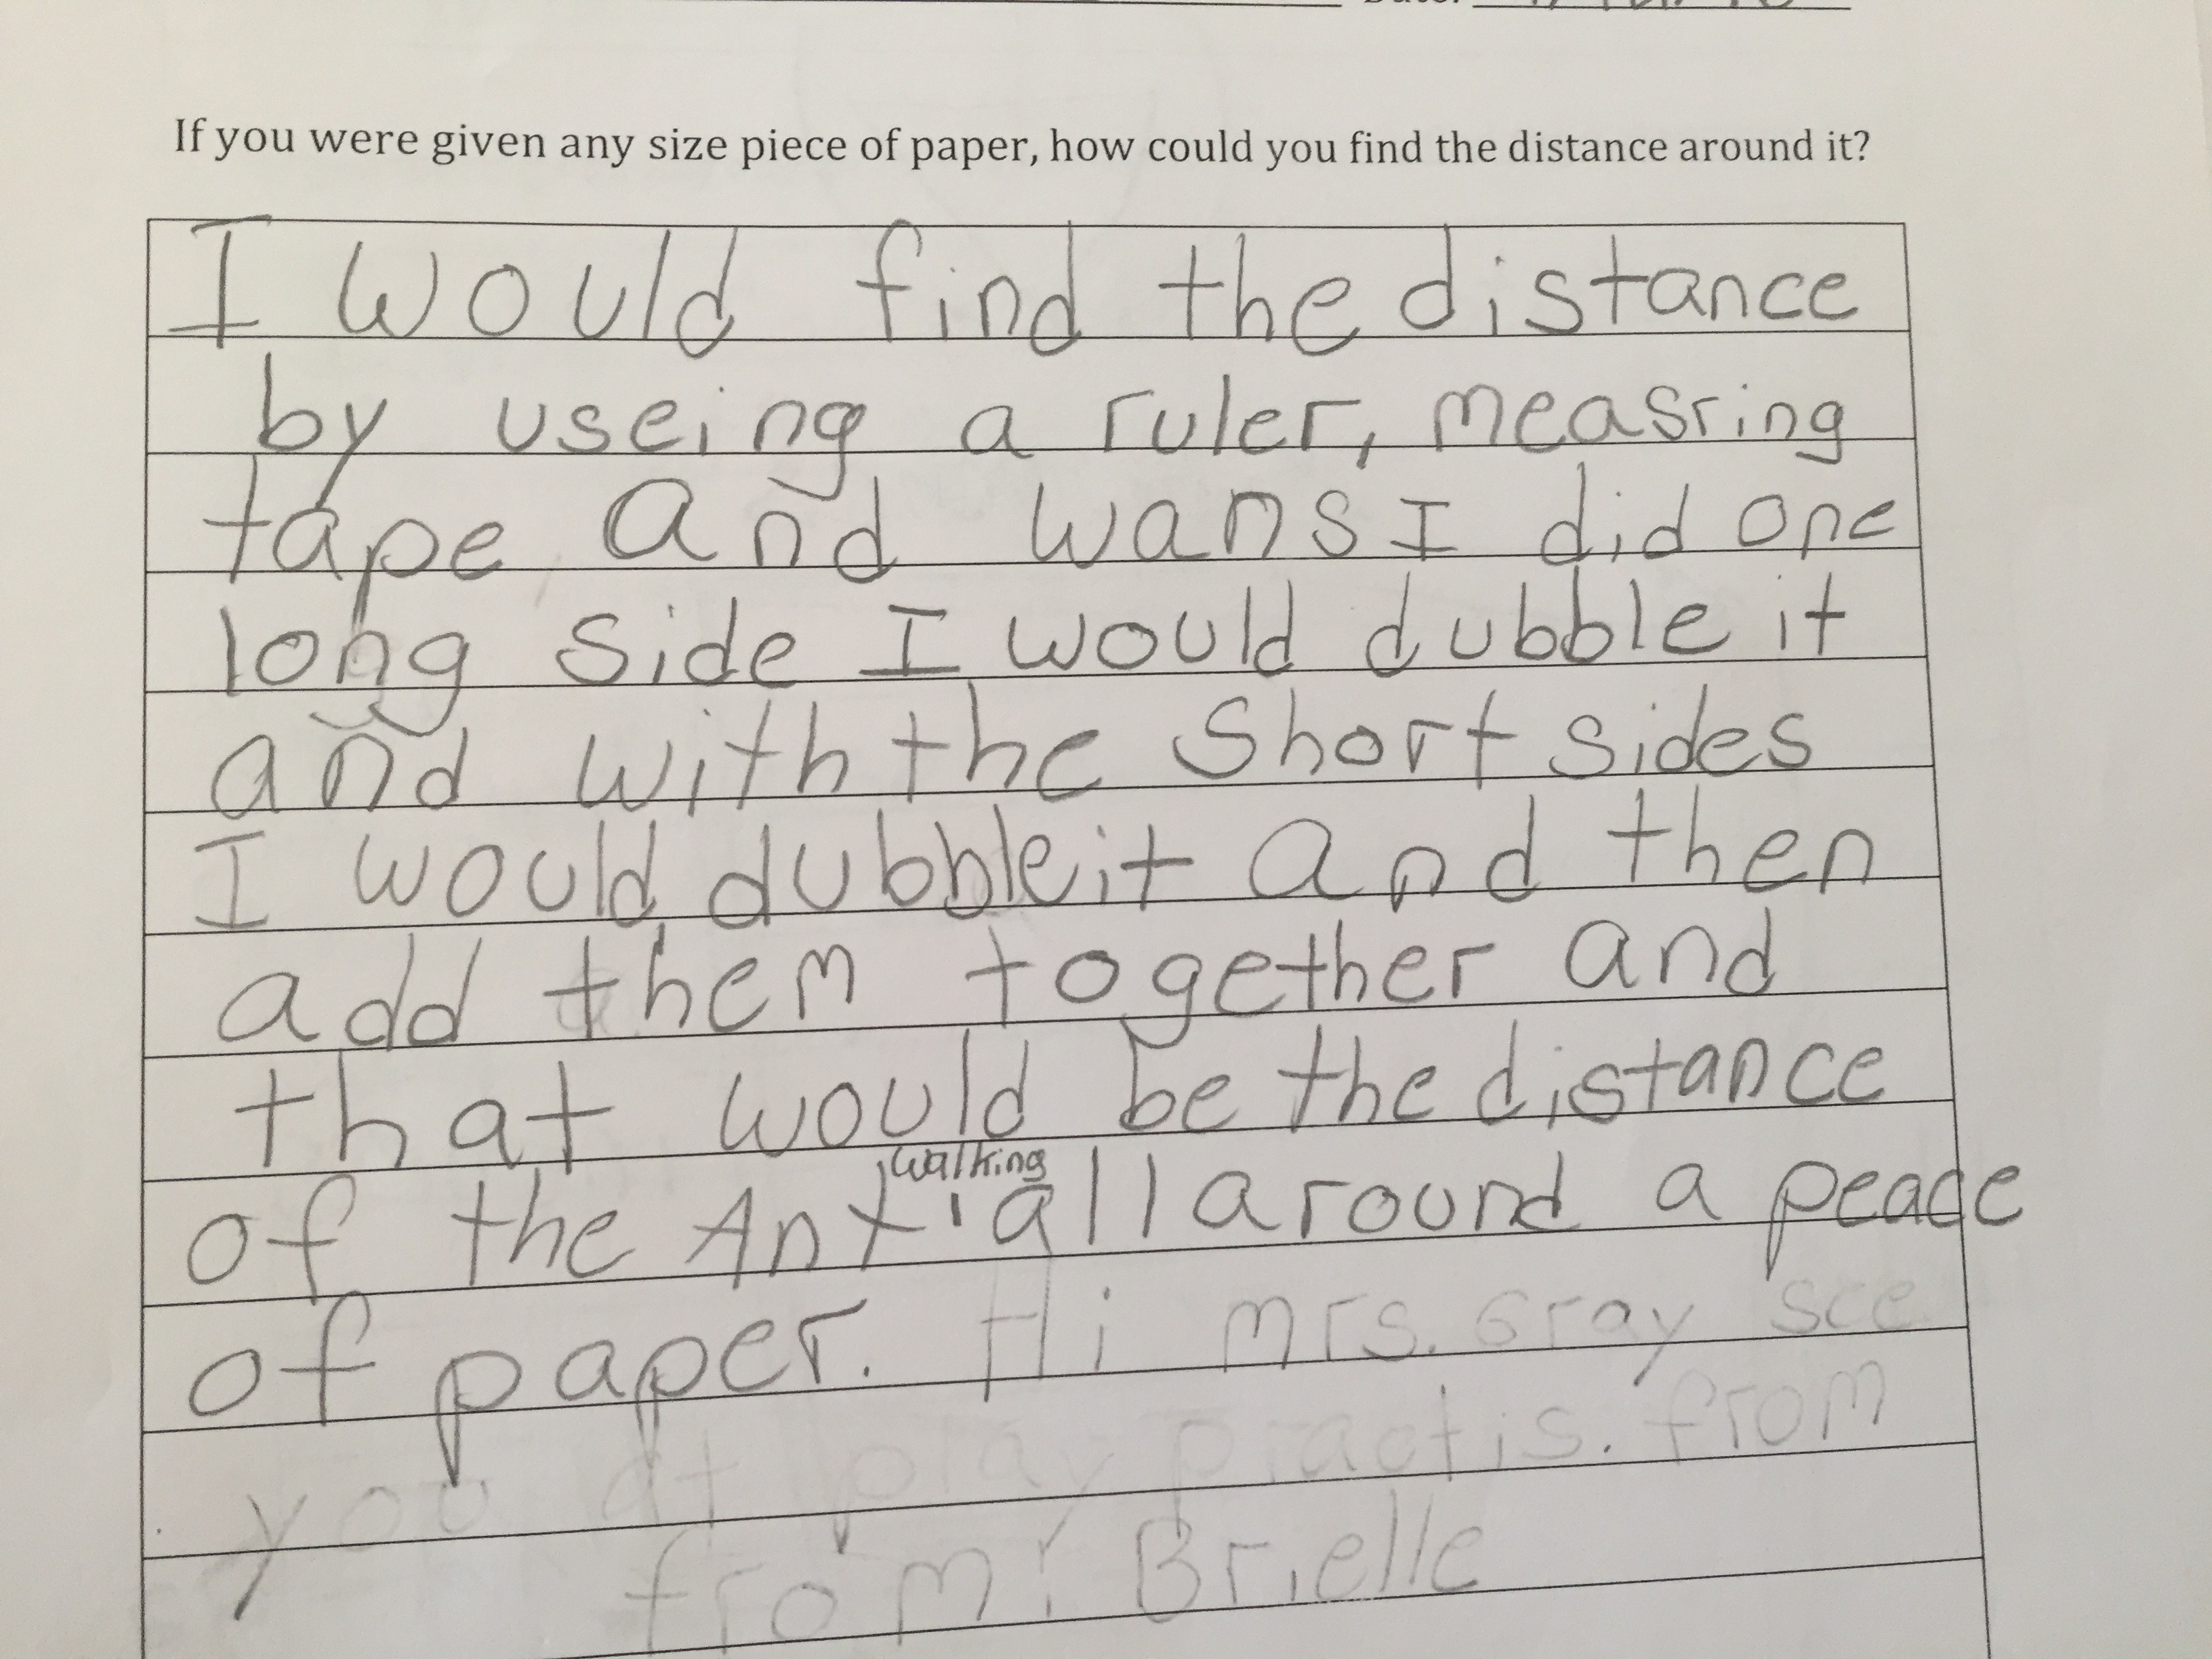 Date:
If you were given any size piece of paper, how could you find the distance around it?
I would find the distance
by useing a ruler, measring
tape and wans I did one
long side I would dubble it
and with the short sides
I would dubble it and then
add them together and
that would be the distance
walking
of the Ant all around a peace
of paper. Hi Mrs. Gray see
you at play practis. from
from: Brielle